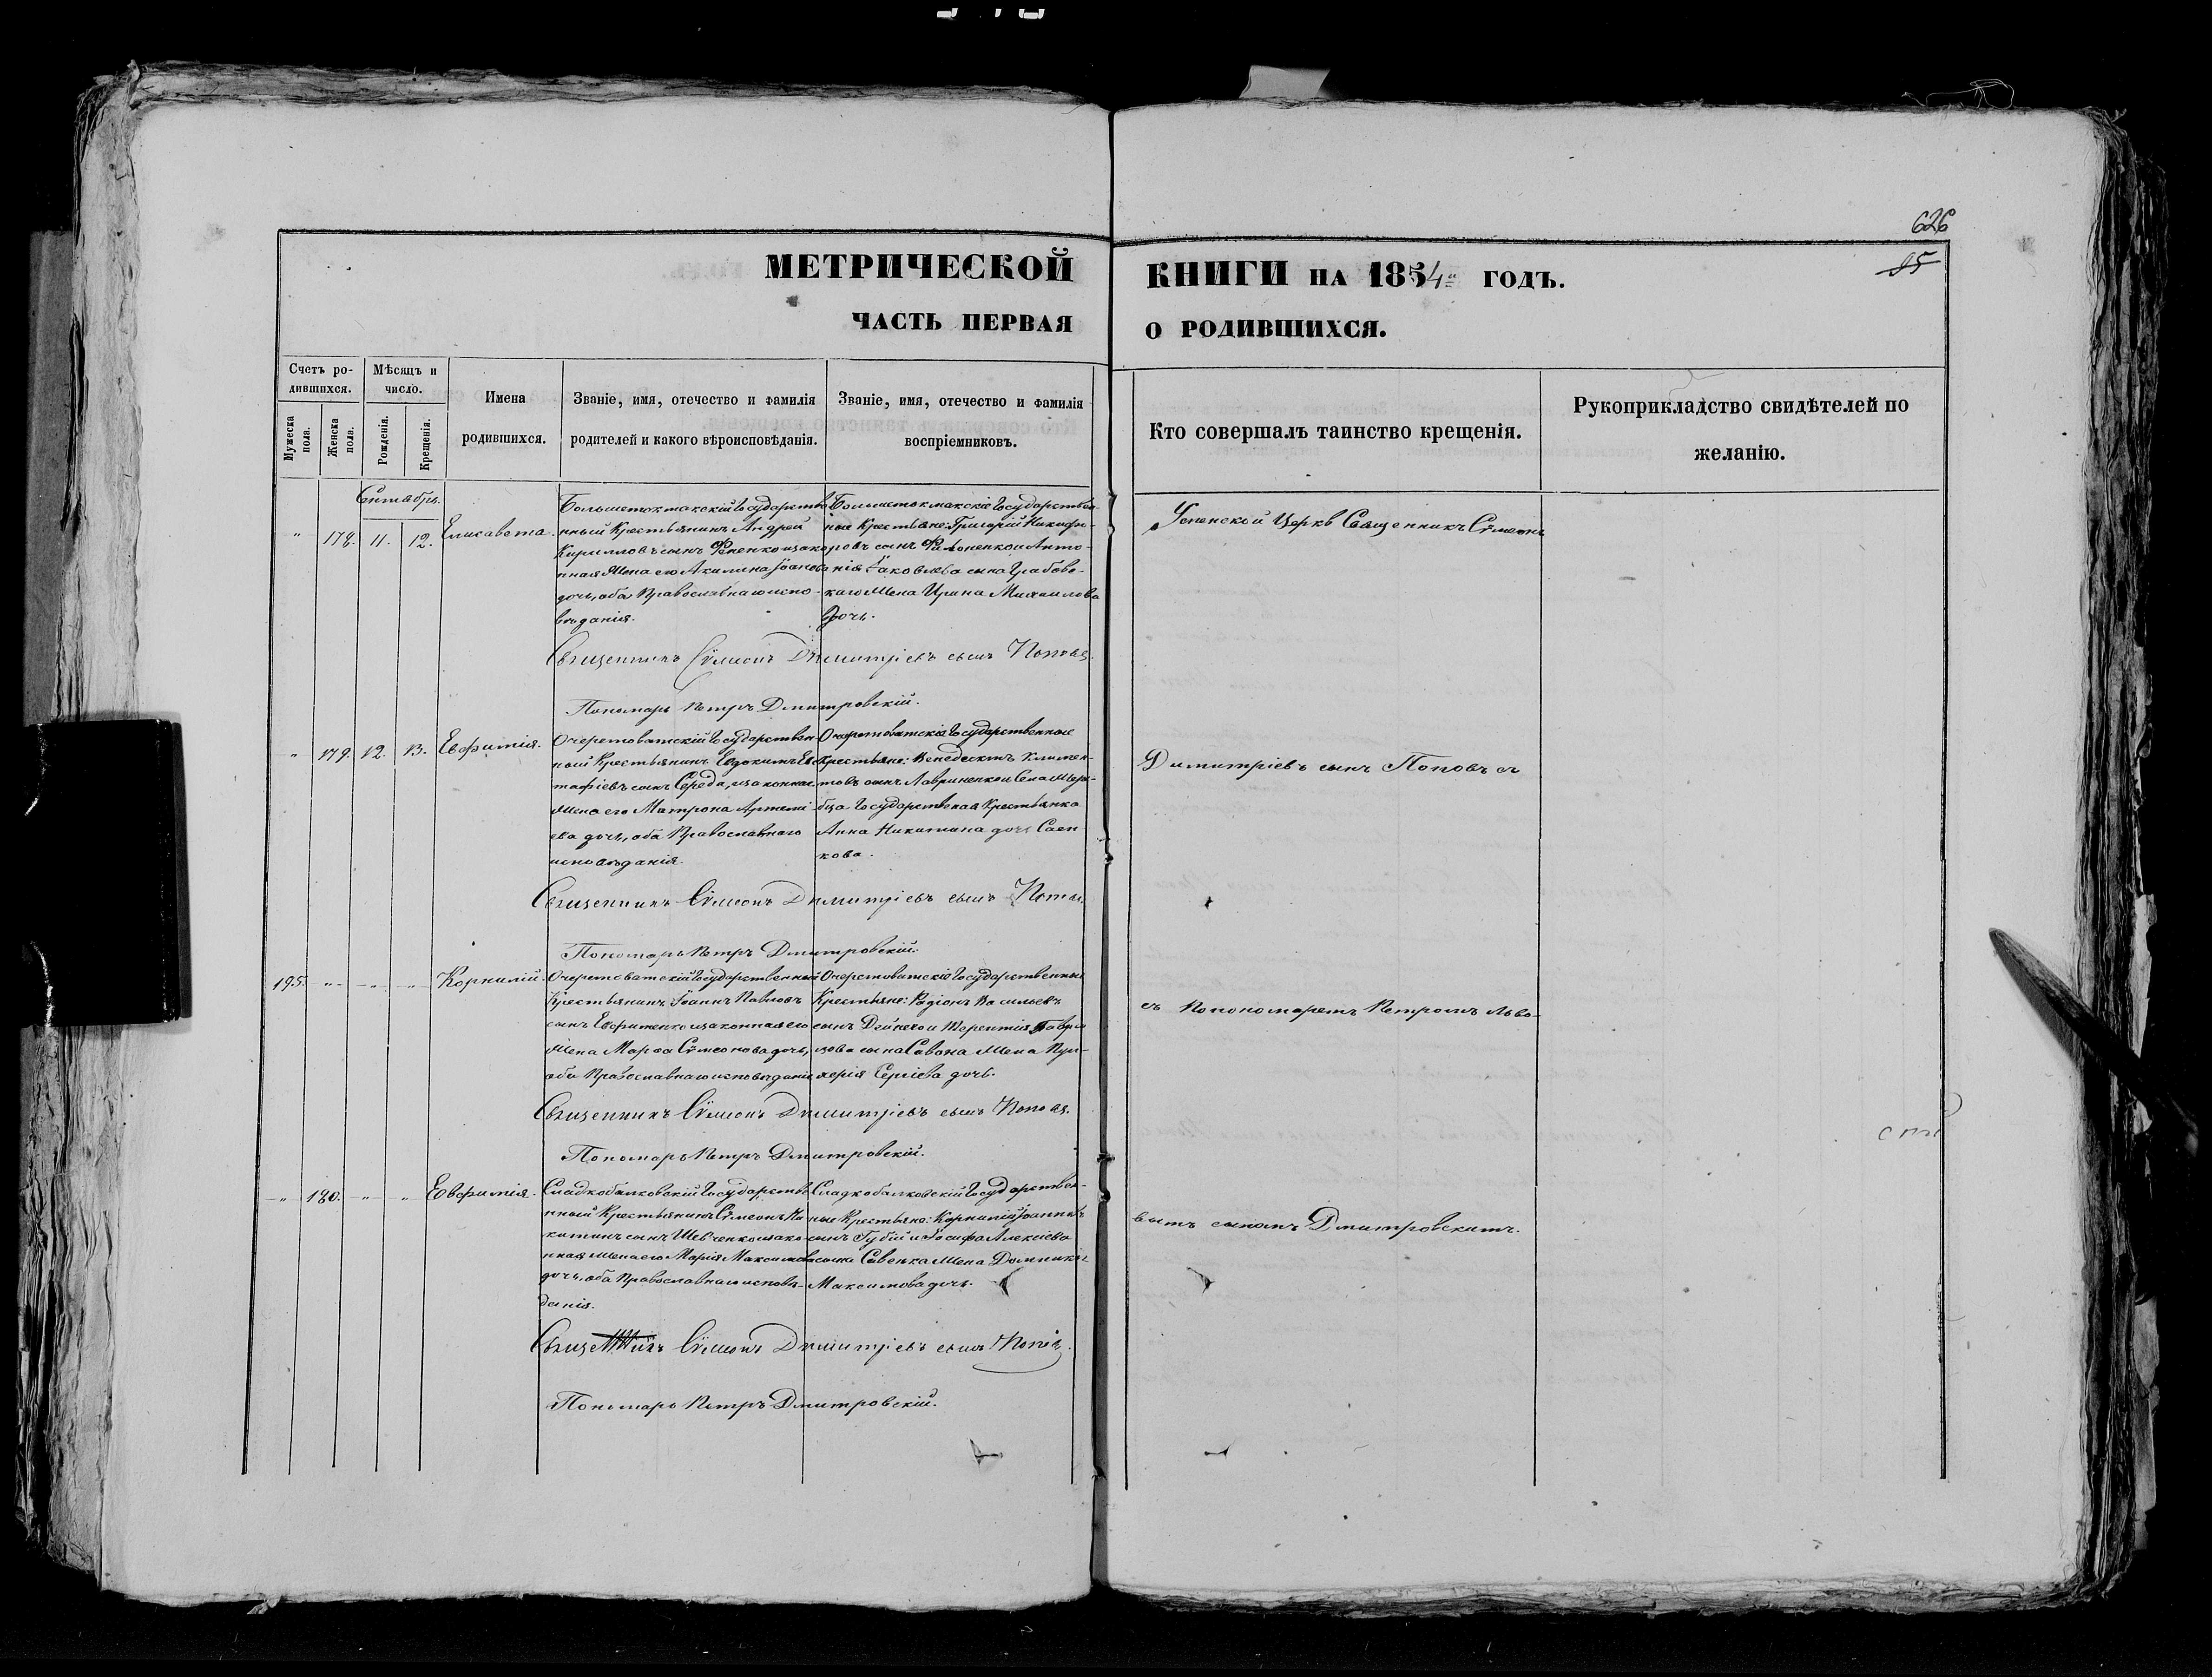 626
95
МЕТРИЧЕСКОЙ
ЧАСТЬ ПЕРВАЯ
КНИГИ НА 1854 ГОДЪ.
О РОДИВШИХСЯ.
Счетъ ро-
дившихся.
Мужеска
пола.
Женска
пола.
Мѣсяцъ и
число.
Рожденія.
Крещенія.
Имена
родившихся.
Званіе, имя, отечество и фамилія
родителей и какого вѣроисповѣданія.
Званіе, имя, отечество и фамилія
воспріемниковъ.
Кто совершалъ таинство крещенія.
Рукоприкладство свидѣтелей по
желанію.
" 178. 11. 12. Елисавета.
Большетокмакскій Государстве
нный Крестьянинъ Андрей
Кирилловъ сынъ
нная Жена его Акилина Іоанова
дочь, оба Православнаго испо-
вѣданія.
Большетокмакскіе Государствен-
ные Крестьяне: Григорій Никифо-
ровъ сынъ и Анто-
нія Іаковлева сына Грабовс-
каго Жена Ирина Михаилова
дочь.
Священникъ Сѵмеонъ Димитріевъ сынъ Поповъ.
Пономарь Петръ Дмитровскій.
" 179. 12. 13. Евфимія.
Очеретоватскій Государствен-
ный Крестьянинъ Евдокимъ Евс
тафіевъ сынъ Середа, и законная
Жена его Матрона Артемі-
ева дочь, оба Православнаго
исповѣданія.
Очеретоватскіе Государственные
Крестьяне: Венедиктъ Климен-
товъ сынъ Лавриненко и Села Жере-
бца Государственая Крестьянка
Анна Никитина дочь Саен-
кова.
Священникъ Сѵмеонъ Димитріевъ сынъ Поповъ.
Пономарь Петръ Дмитровскій.
195. " " " Корнилій.
Очеретоватскій Государственный
Крестьянинъ Іоаннъ Павловъ
сынъ Ефименко и законная его
Жена Марѳа Сѵмеонова дочь,
оба Православнаго исповѣданія
Очеретоватскіе Государственные
Крестьяне: Родіонъ Васильевъ
сынъ Дейнега и Терентія Гаври
лова сына Савона Жена Пул-
херія Сергіева дочь.
Священникъ Сѵмеонъ Димитріевъ сынъ Поповъ.
Пономарь Петръ Дмитровскій.
" 180. " " Евфимія.
Сладкобалковскій Государстве
нный Крестьянинъ Сѵмеонъ Ни
китинъ сынъ Шевченко и зако
нная Жена его Марія Максимова
дочь, оба Православнаго исповѣ-
данія.
Сладкобалковскій Государствен-
ные Крестьяне: Корнилій Іоаннъ
сынъ Губій и Іосифа Алексіева
сына Савенка Жена Домникія
Максимова дочь.
Сѵмеонъ Димитріевъ сынъ Поповъ.
Пономарь Петръ Дмитровскій.
Успенской Церкв Священникъ Сѵмеонъ
Димитріевъ сынъ Поповъ съ
съ Попономаремъ Петромъ Льво-
вымъ сыномъ Дмитровскимъ.